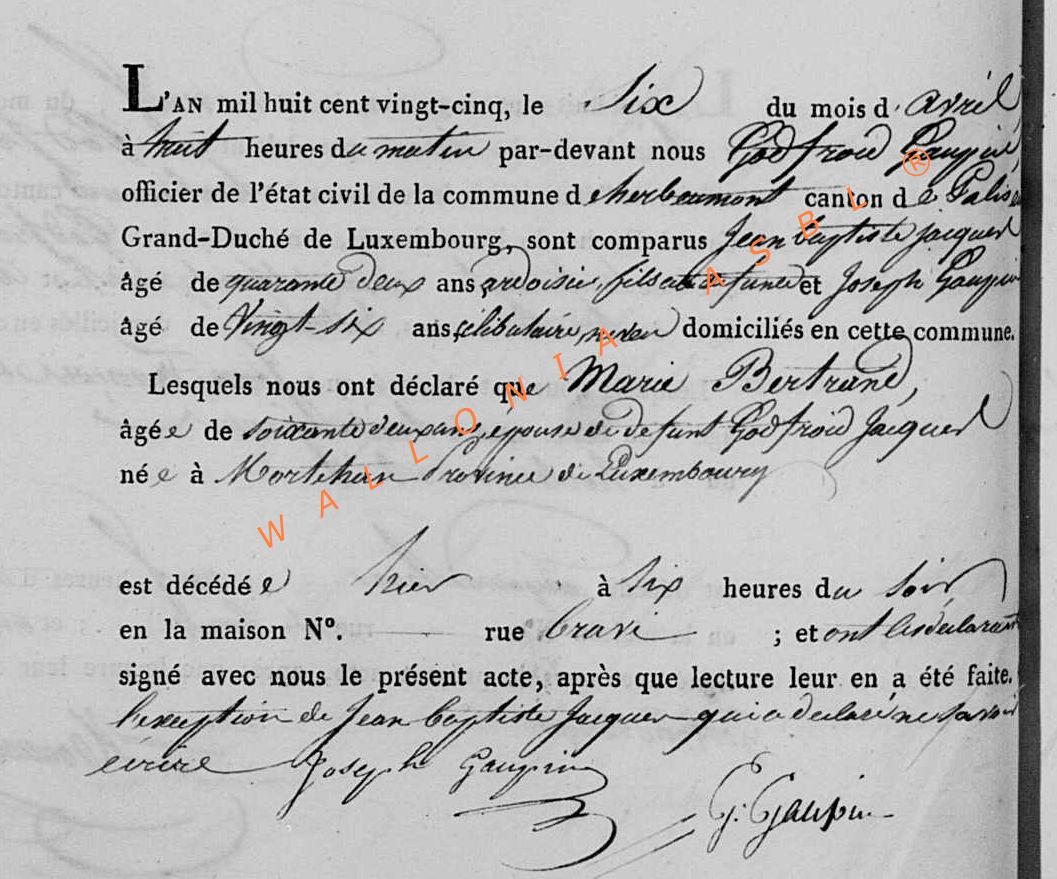 L'AN mil huit cent vingt-cinq, le Six du mois d'avril,
à huit heures du matin par-devant nous Godfroid Gaupin,
officier de l'état civil de la commune d'herbeumont canton de Palis
Grand-Duché de Luxembourg, sont comparus Jean baptiste jacquer
âgé de quarante deux ans ardoisier, fils de la defunte et Joseph Gaupin
âgé de Vingt-six ans, célibataire, neveu domiciliés en cette commune.
Lesquels nous ont déclaré que Marie Bertrand,
âgée de soixante deux ans, épouse de defunt Godfroid Jacquer
née à Mortehan Province de Luxembourg
est décédée hier à six heures du soir
en la maison N°. rue ; et ont les declarant
signé avec nous le présent acte, après que lecture leur en a été faite.
l'exeption de Jean baptiste Jacquer qui a declaré ne savoir
écrire Joseph Gaupin
G. Gaupin
WALLONIA ASBL ®